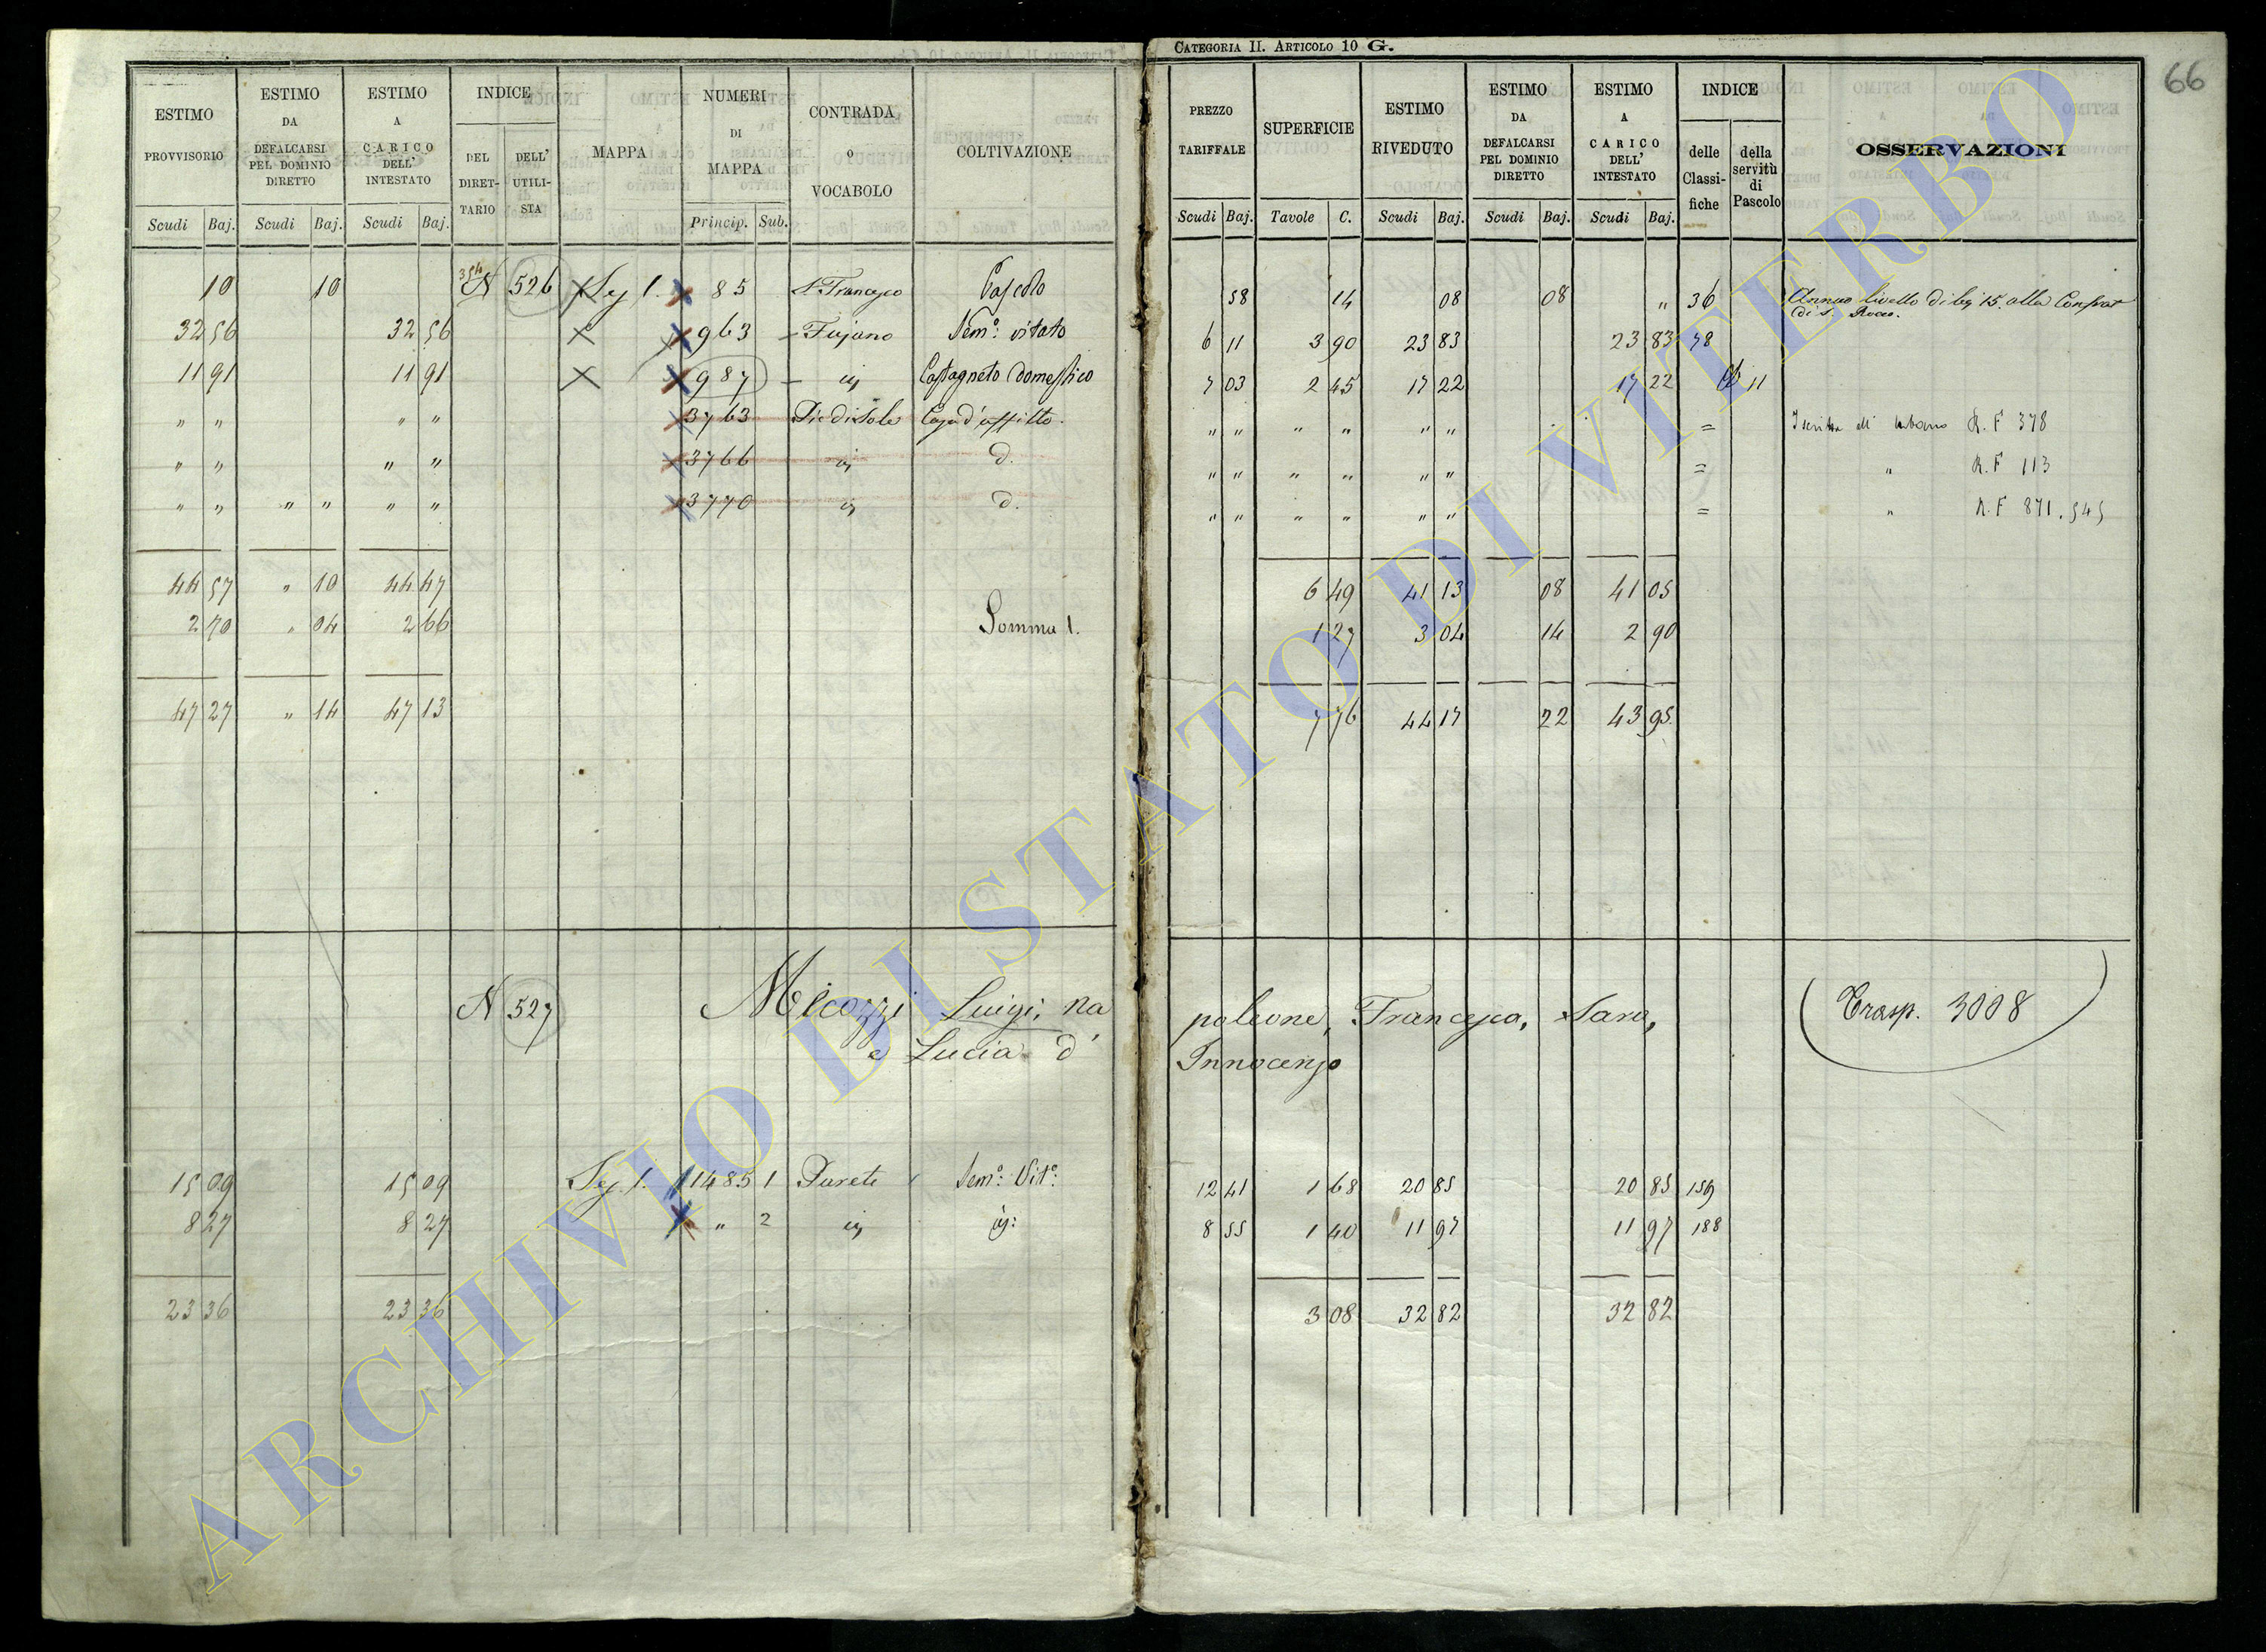 CATEGORIA II. ARTICOLO 10 G.
66
ESTIMO PROVVISORIO Scudi Baj.
ESTIMO DA DEFALCARSI PEL DOMINIO DIRETTO Scudi Baj.
ESTIMO A CARICO DELL' INTESTATO Scudi Baj.
INDICE DEL DIRETTARIO DELL' UTILISTA
MAPPA
NUMERI DI MAPPA Princip. Sub.
CONTRADA o VOCABOLO
COLTIVAZIONE
PREZZO TARIFFALE Scudi Baj.
SUPERFICIE Tavole C.
ESTIMO RIVEDUTO Scudi Baj.
ESTIMO DA DEFALCARSI PEL DOMINIO DIRETTO Scudi Baj.
ESTIMO A CARICO DELL' INTESTATO Scudi Baj.
INDICE delle Classifiche della servitù di Pascolo
OSSERVAZIONI
10 10 N 526 Sez 1. 85 S. Francesco Pascolo 58 14 08 08 " 36 Annuo livello di bj 15. alla Confrat
di S. Rocco.
32 56 32 56 963 Fujano Sem.º vitato 6 11 3 90 23 83 23 83 78
11 91 11 91 987 Castagneto domestico 7 03 2 45 17 22 17 22 11
" " " " 3763 Pie di Sole Casa d'affitto. " " " " " " = R. F 378
" " " " 3766 d. " " " " " " = " R. F 113
" " " " " " 3770 d. " " " " " " = " R. F 871. 545
44 57 " 10 44 47 6 49 41 13 08 41 05
2 70 " 04 2 66 Somma 1. 1 27 3 04 14 2 90
47 27 " 14 47 13 7 76 44 17 22 43 95
N 527 Micozzi Luigi, Na poleone, Francesca, Sara, Trasp. 3008
e Lucia d' Innocenzo
15 09 15 09 Sez. 1. 1485 1 Purete Sem.º Vit.º 12 41 1 68 20 85 20 85 159
8 27 8 27 " 2 8 55 1 40 11 97 11 97 188
23 36 23 36 3 08 32 82 32 82
ARCHIVIO DI STATO DI VITERBO